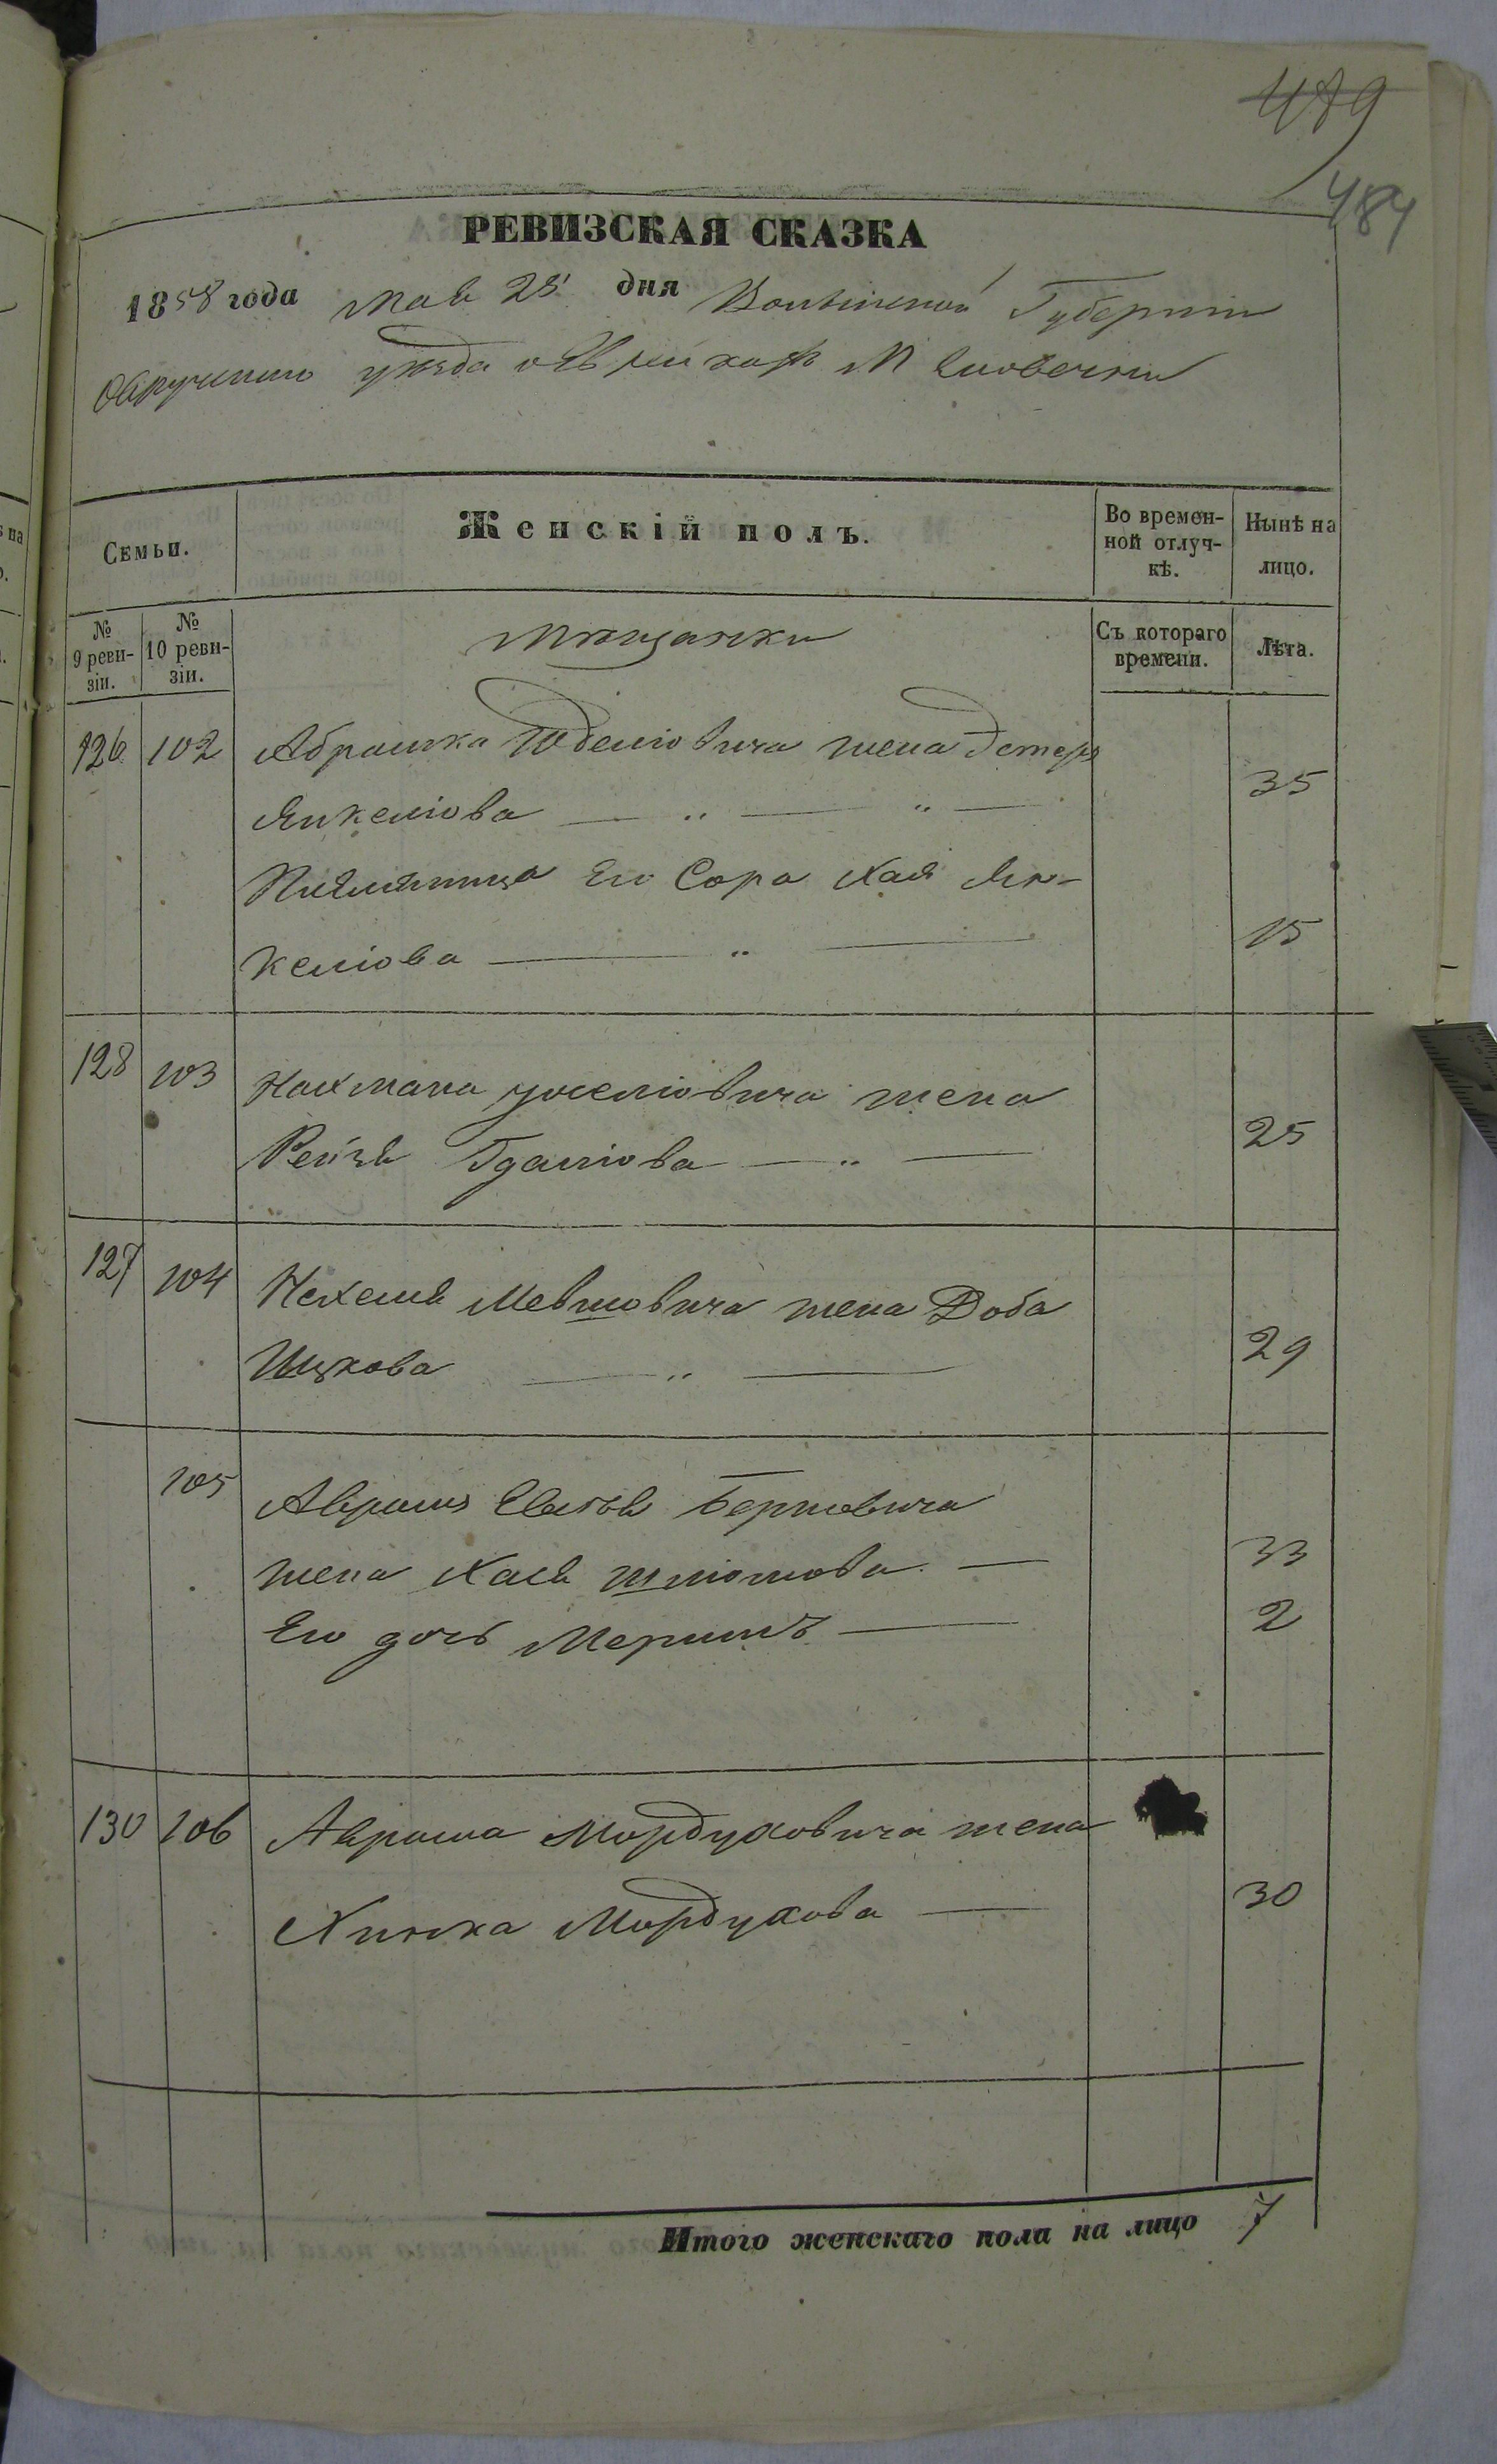 479
484
РЕВИЗСКАЯ СКАЗКА
1858 года мая 25 дня Волынской Губерніи
Овручскаго уѣзда о Евреихъ М
Семьи.
Женскій полъ.
Во времен-
ной отлуч-
кѣ.
Нынѣ на
лицо.
№
9 реви-
зіи.
№
10 реви-
зіи.
Мѣщанки
Съ котораго
времени.
Лѣта.
126 102 Абрашка Юделіовича жена Эстеръ
Янкеліова 35
Племянница Его Сора Хая Ян-
келіова 15
128 103 Нахмана жена
Рейзя Гдаліова 25
127 104 Нехемя Мевшовича жена Доба
Ицкова 29
105 Аврамъ Берковича
жена Хася Шліомова 33
Его дочь 2
130 106 Аврама Мордуховича жена
Мордухова 30
Итого женскаго пола на лицо 7